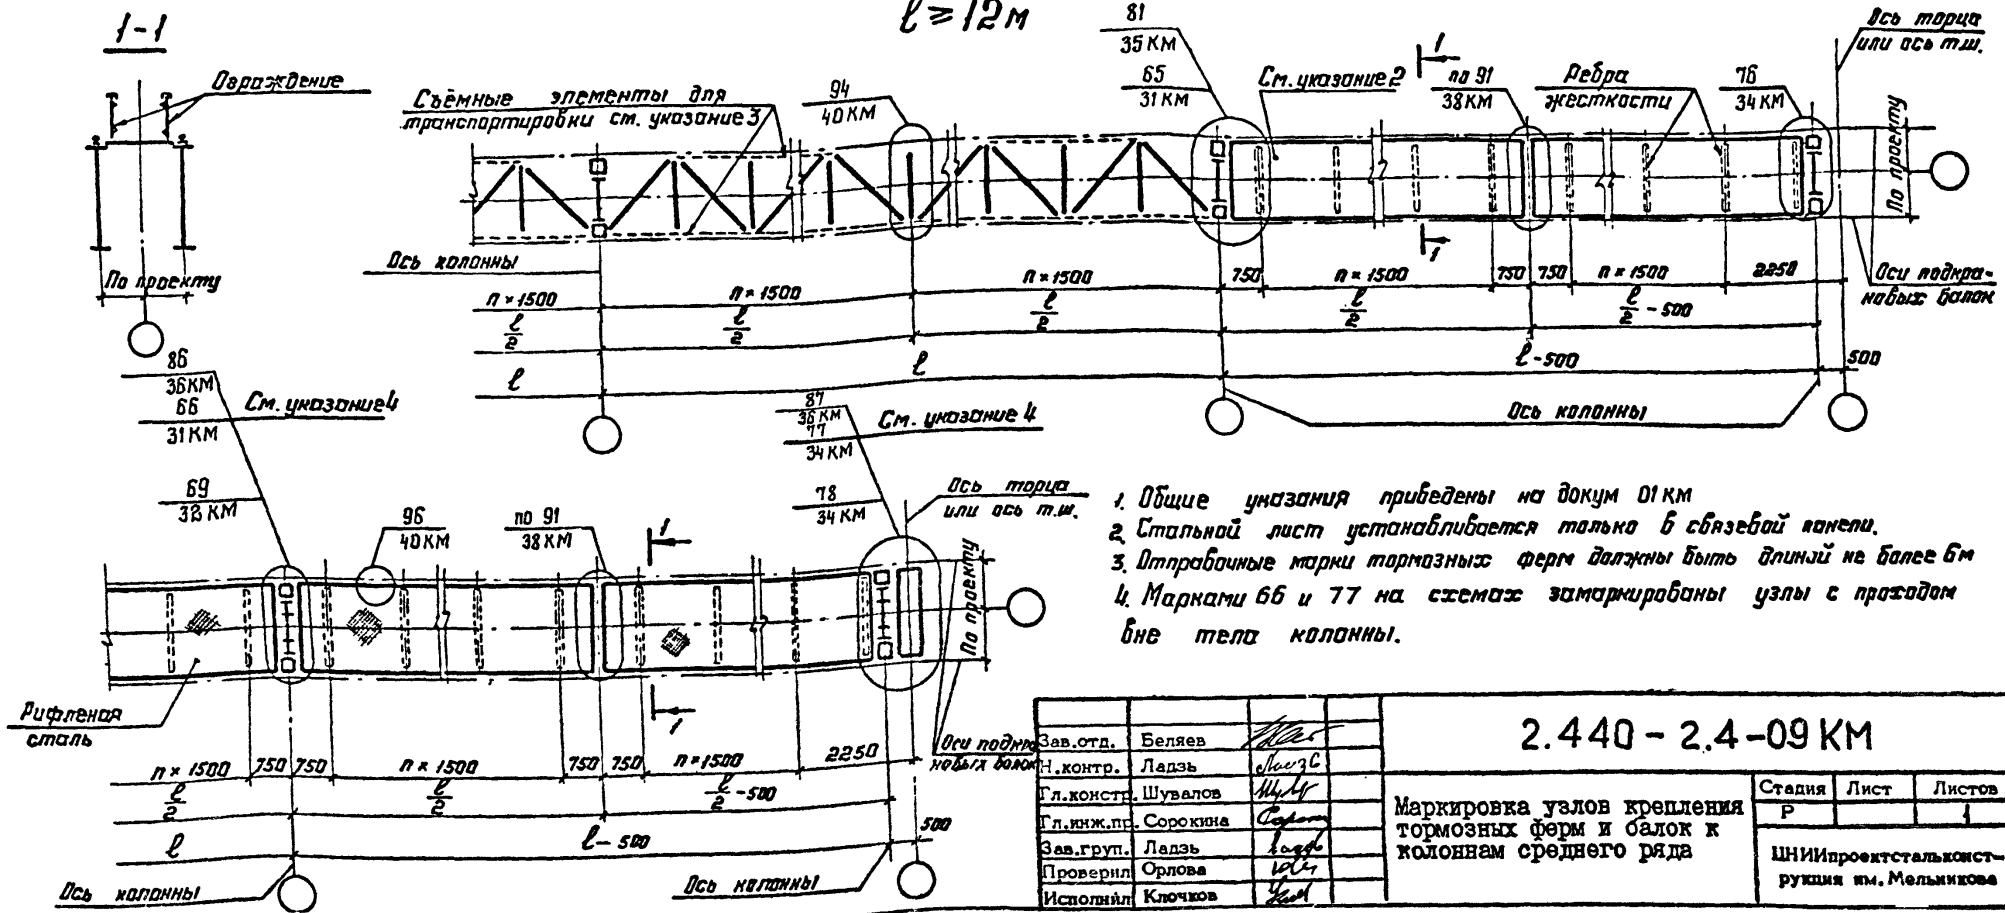 1-1
Ограждение
По проекту
ℓ ≥ 12м
Съёмные элементы для
транспортировки см. указание 3
94
40 КМ
81
35 КМ
65
31 КМ
См. указание 2
1
по 91
38 КМ
Ребра
жесткости
76
34 КМ
Ось торца
или ось т.ш.
По проекту
Оси подкра-
новых балок
Ось колонны
1
n × 1500
n × 1500
n × 1500
750
n × 1500
750
750
n × 1500
2250
ℓ/2
ℓ/2
ℓ/2
ℓ/2
ℓ/2 - 500
ℓ
ℓ
ℓ - 500
500
Ось колонны
86
36 КМ
66
31 КМ
См. указание 4
69
32 КМ
96
40 КМ
по 91
38 КМ
1
87
36 КМ
77
34 КМ
См. указание 4
78
34 КМ
Ось торца
или ось т.ш.
По проекту
Оси подкра
новых балок
Рифленая
сталь
1
n × 1500
750
750
n × 1500
750
750
n × 1500
2250
ℓ/2
ℓ/2
ℓ/2 - 500
ℓ
ℓ - 500
500
Ось колонны
Ось колонны
1. Общие указания приведены на докум 01 км
2. Стальной лист устанавливается только в связевой панели.
3. Отправочные марки тормозных ферм должны быть длиной не более 6м
4. Марками 66 и 77 на схемах замаркированы узлы с проходом
вне тела колонны.
Зав.отд. Беляев
Н.контр. Ладзь
Гл.констр. Шувалов
Гл.инж.пр. Сорокина
Зав.груп. Ладзь
Проверил Орлова
Исполнил Клочков
2.440 - 2.4-09 КМ
Маркировка узлов крепления
тормозных ферм и балок к
колоннам среднего ряда
Стадия Лист Листов
Р 1
ЦНИИпроектстальконст-
рукция им. Мельникова